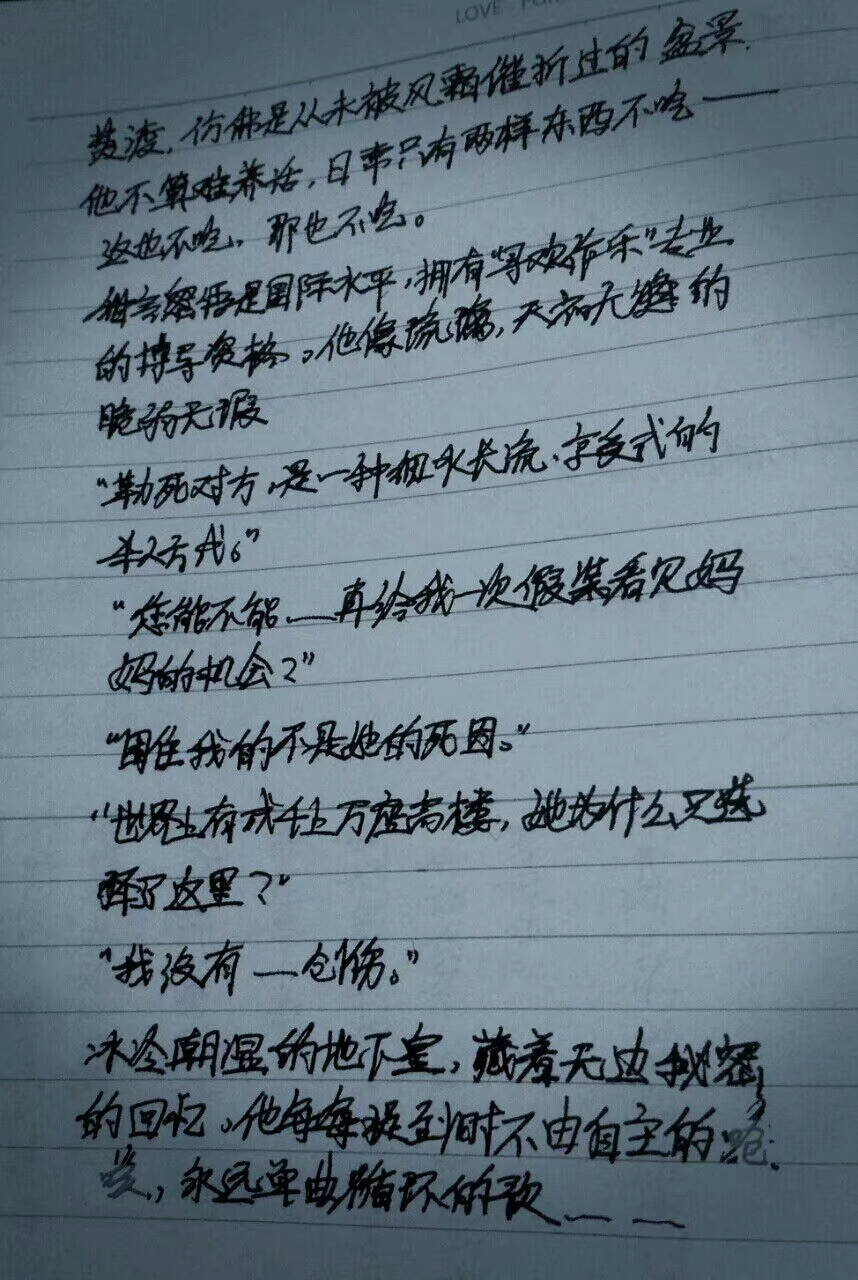 LOVE
费渡，仿佛是从未被风霜催折过的盆景.
他不算难养活，日常只有两样东西不吃——
这也不吃，那也不吃。
甜言密语是国际水平，拥有“寻欢作乐”专业
的博导资格。他像琉璃，天衣无缝的
脆弱无瑕
“勒死对方，是一种细水长流、享受式的
杀人方式。”
“您能不能……再给我一次假装看见妈
妈的机会？”
“困住我的不是她的死因。”
“世界上有成千上万座高楼，她为什么只选
择了这里？”
“我没有——创伤。”
冰冷潮湿的地下室，藏着无边秘密
的回忆。他每每提到时不由自主的呛
咳，永远单曲循环的歌……